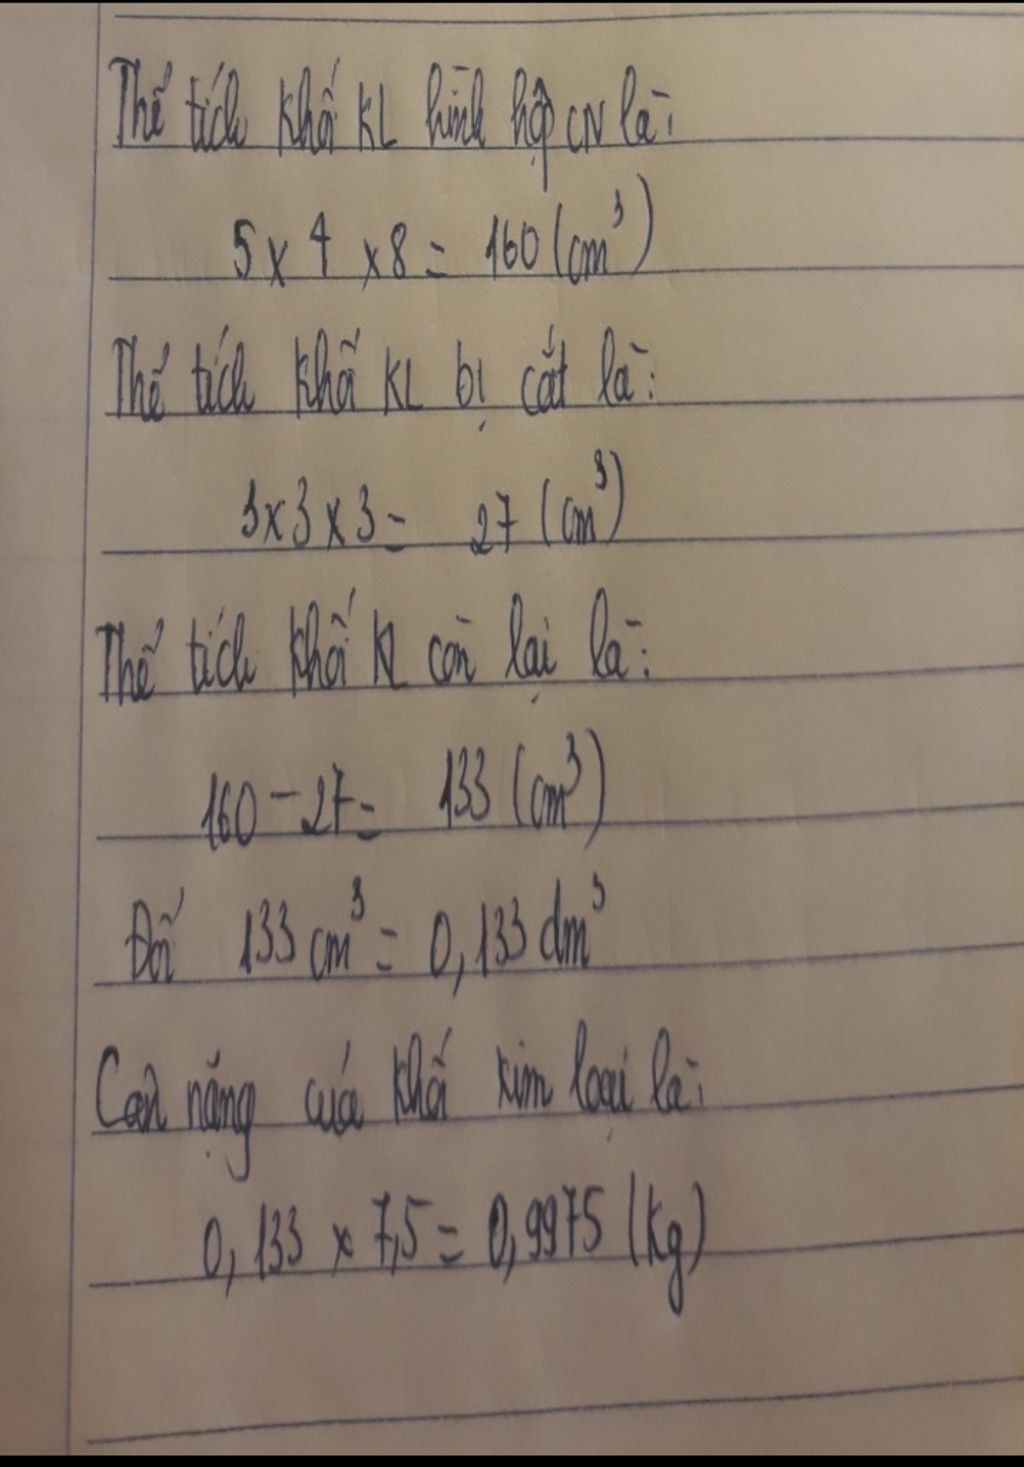 Thể tích khối KL hình hộp CN là:
5 x 4 x 8 = 160 (cm³)
Thể tích khối KL bị cắt là:
3 x 3 x 3 = 27 (cm³)
Thể tích khối KL còn lại là:
160 - 27 = 133 (cm³)
Đổi 133 cm³ = 0,133 dm³
Cân nặng của khối kim loại là:
0,133 x 7,5 = 0,9975 (kg)